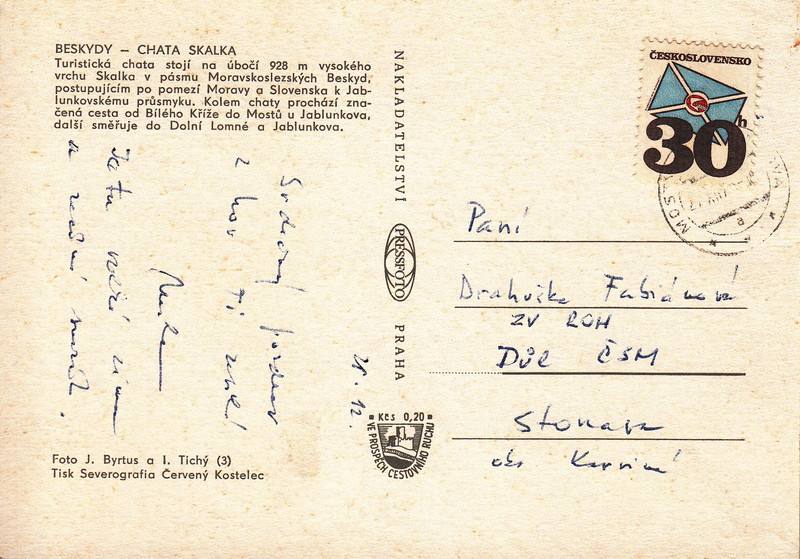 BESKYDY — CHATA SKALKA
Turistická chata stojí na úbočí 928 m vysokého
vrchu Skalka v pásmu Moravskoslezských Beskyd,
postupujícím po pomezí Moravy a Slovenska k Jab-
lunkovskému průsmyku. Kolem chaty prochází zna-
čená cesta od Bílého Kříže do Mostů u Jablunkova,
další směřuje do Dolní Lomné a Jablunkova.
Srdečný pozdrav
z hor Ti
Foto J. Byrtus a I. Tichý (3)
Tisk Severografia Červený Kostelec
NAKLADATELSTVÍ
PRESSFOTO
PRAHA
28. 12.
Kčs 0,20
VE PROSPĚCH CESTOVNÍHO RUCHU
ČESKOSLOVENSKO
30h
MOSTY
Paní
Drahuška Fabiánová
ZV ROH
Důl ČSM
Stonava
okr. Karviná